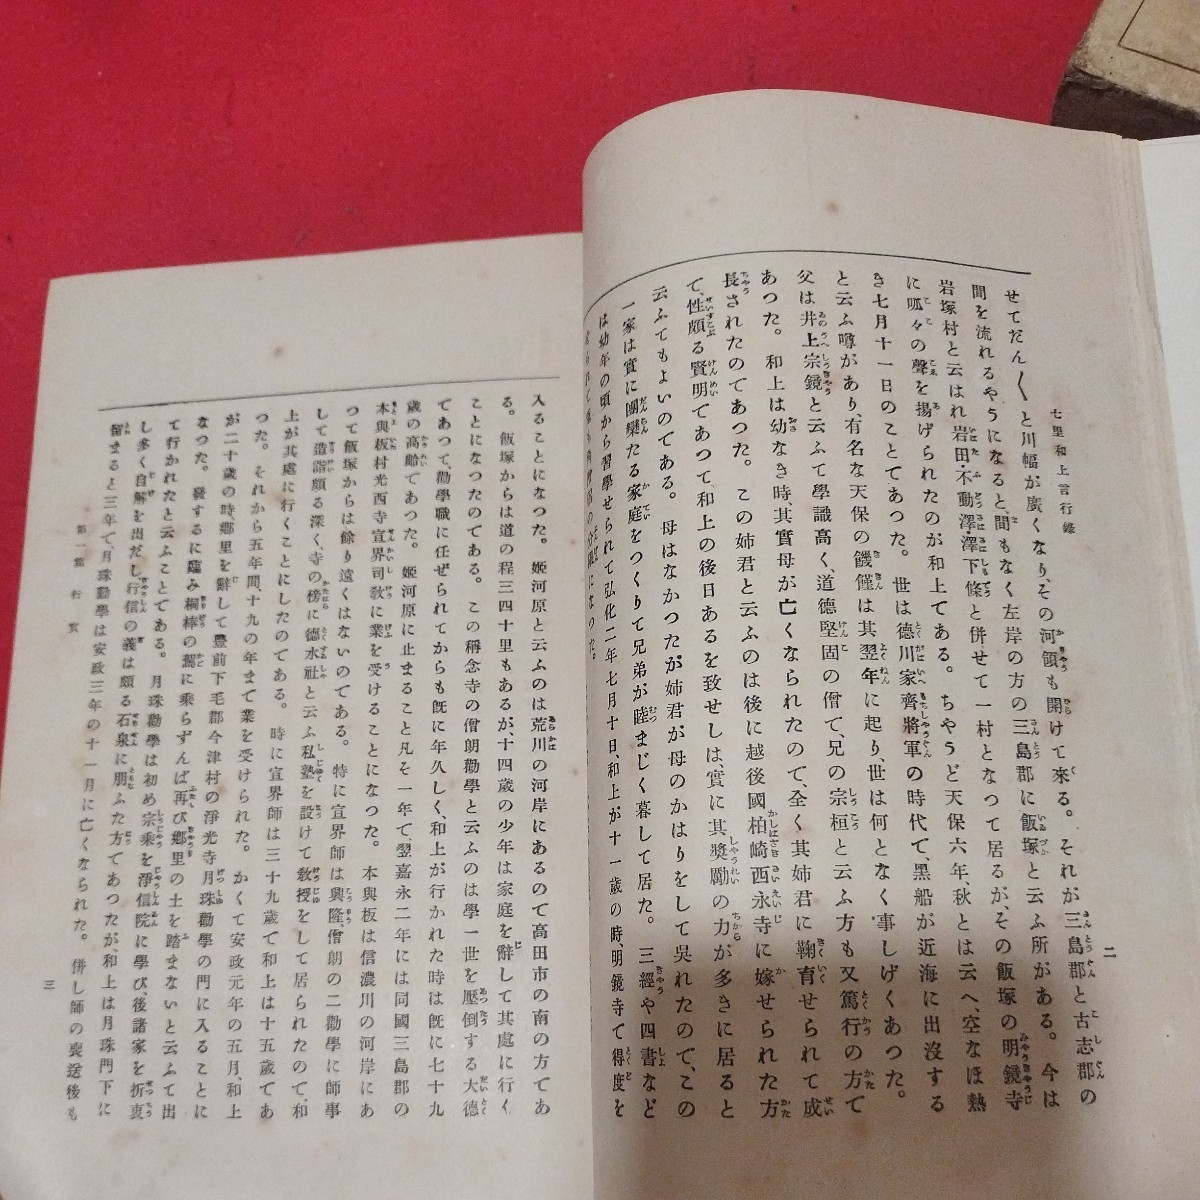 七里和上言行錄
二
せてだん〱と川幅が廣くなり、その河領も開けて來る。それが三島郡と古志郡の
間を流れるやうになると、間もなく左岸の方の三島郡に飯塚と云ふ所がある。今は
岩塚村と云はれ岩田・不動澤・澤下條と併せて一村となつて居るが、その飯塚の明鏡寺
に呱々の聲を揚げられたのが和上である。ちやうど天保六年、秋とは云へ、空なほ熱
き七月十一日のことであつた。世は德川家齊將軍の時代で、黑船が近海に出沒する
と云ふ噂があり、有名な天保の饑饉は其翌年に起り、世は何となく事しげくあつた。
父は井上宗鏡と云ふて學識高く、道德堅固の僧で、兄の宗桓と云ふ方も又篤行の方で
あつた。和上は幼なき時其實母が亡くなられたので、全く其姉君に鞠育せられて成
長されたのであつた。この姉君と云ふのは後に越後國柏崎西永寺に嫁せられた方
で、性頗る賢明であつて、和上の後日あるを致せしは、實に其奬勵の力が多きに居ると
云ふてもよいのである。母はなかつたが姉君が母のかはりをして吳れたので、この
一家は實に團欒たる家庭をつくりて兄弟が睦まじく暮して居た。三經や四書など
は幼年の頃から習學せられて弘化二年七月十日、和上が十一歲の時、明鏡寺で得度を
入ることになつた。姬河原と云ふのは荒川の河岸にあるので高田市の南の方であ
る。飯塚からは道の程三四十里もあるが、十四歲の少年は家庭を辭して其處に行く
ことになつたのである。この稱念寺の僧朗勸學と云ふのは學一世を壓倒する大德
であつて、勸學職に任ぜられてからも旣に年久しく、和上が行かれた時は旣に七十九
歲の高齡であつた。姬河原に止まること凡そ一年で、翌嘉永二年には同國三島郡の
本與板村光西寺宣界司敎に業を受けることになつた。本與板は信濃川の河岸にあ
つて飯塚からは餘り遠くはないのである。特に宣界師は興隆、僧朗の二勸學に師事
して造詣頗る深く、寺の傍に德水社と云ふ私塾を設けて敎授をして居られたので、和
上が其處に行くことにしたのである。時に宣界師は三十九歲で和上は十五歲であ
つた。それから五年間、十九の年まで業を受けられた。かくて安政元年の五月、和上
が二十歲の時、鄕里を辭して豊前下毛郡今津村の淨光寺月珠勸學の門に入ることに
なつた。發するに臨み桐棒の駕に乘らずんば再び鄕里の土を踏まないと云ふて出
て行かれたと云ふことである。月珠勸學は初め宗乘を淨信院に學び、後諸家を折衷
し多く自解を出だし、行信の義は頗る石泉に朋ふた方であつたが、和上は月珠門下に
留まると三年で、月珠勸學は安政三年の十一月に亡くなられた。倂し師の喪送後も
第一篇 行實
三